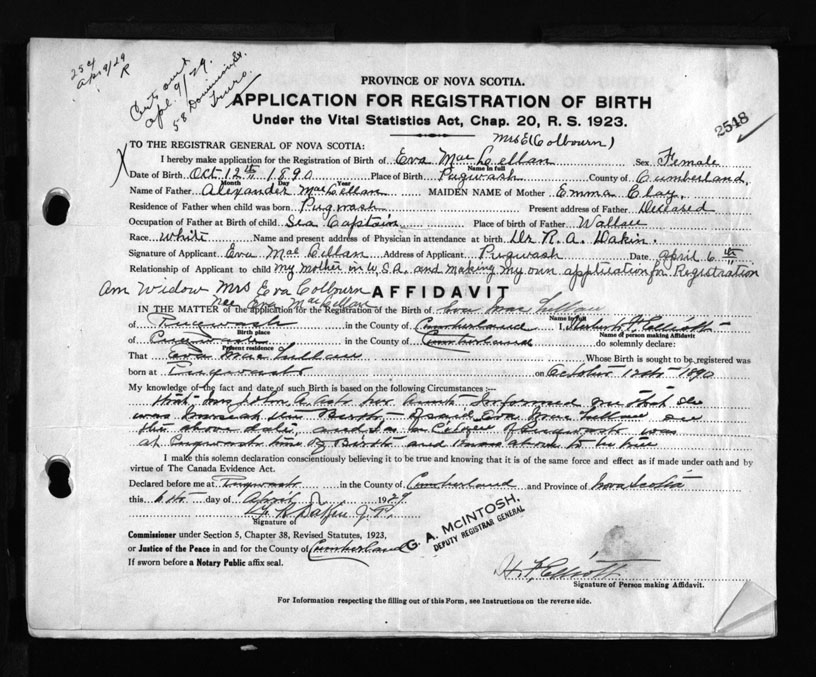 254
Apr 9/29
R
Cert sent
Apl. 9/29.
58 Dominion St.
Truro
PROVINCE OF NOVA SCOTIA.
APPLICATION FOR REGISTRATION OF BIRTH
Under the Vital Statistics Act, Chap. 20, R. S. 1923.
2548
Mrs E (Colbourn)
TO THE REGISTRAR GENERAL OF NOVA SCOTIA:
X I hereby make application for the Registration of Birth of Eva MacLellan Sex Female
Name in full
Date of Birth Oct 12th 1890 Place of Birth Pugwash County of Cumberland,
Month Day Year
Name of Father Alexander MacLellan MAIDEN NAME of Mother Emma Clay.
Residence of Father when child was born Pugwash Present address of Father Deceased
Occupation of Father at Birth of child Sea Captain Place of birth of Father Wallace
Race White Name and present address of Physician in attendance at birth Dr R. A. Dakin.
Signature of Applicant Eva MacLellan Address of Applicant Pugwash Date April 6th
Relationship of Applicant to child My mother in U.S.A. and making my own application for Registration
Am Widow Mrs Eva Colbourn
Nee Eva MacLellan
AFFIDAVIT
IN THE MATTER of the application for the Registration of the Birth of Eva Mac Lellan
Name in full
of Pugwash in the County of Cumberland I, Elliott
Birth place Name of person making Affidavit
of Pugwash in the County of Cumberland do solemnly declare:
Present residence
That Eva Mac Lellan Whose Birth is sought to be registered was
born at Pugwash on October 12th 1890
My knowledge of the fact and date of such Birth is based on the following Circumstances:—
that Mrs John A her Aunt Informed me that she
was at the Birth of said Eva Mac Lellan on
the above date, and I a of Pugwash was
at Pugwash time of Birth and above to be true
I make this solemn declaration conscientiously believing it to be true and knowing that it is of the same force and effect as if made under oath and by
virtue of The Canada Evidence Act.
Declared before me at Pugwash in the County of Cumberland and Province of Nova Scotia
this 6th day of April 1929
Dakin J.P.
Signature of
Commissioner under Section 5, Chapter 38, Revised Statutes, 1923,
or Justice of the Peace in and for the County of Cumberland
If sworn before a Notary Public affix seal.
G. A. McINTOSH,
DEPUTY REGISTRAR GENERAL
H. F. Elliott
Signature of Person making Affidavit.
For Information respecting the filling out of this Form, see Instructions on the reverse side.